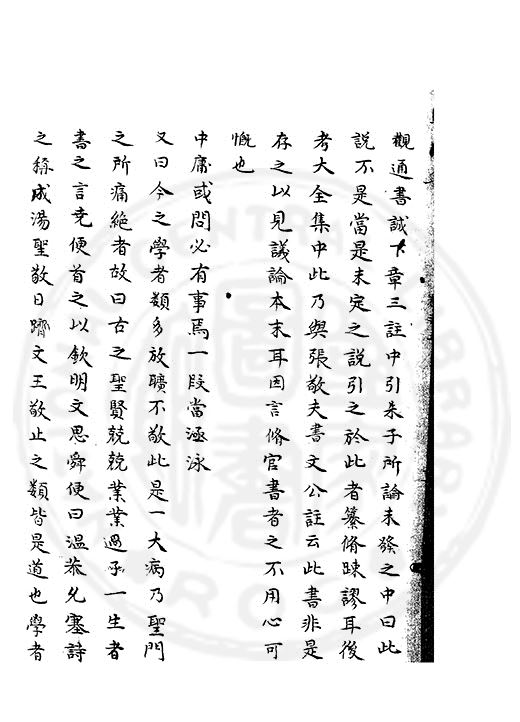 觀通書誠下章三註中引朱子所論未發之中曰此
說不是當是未定之說引之於此者纂脩踈謬耳後
考大全集中此乃與張敬夫書文公註云此書非是
存之以見議論本末耳因言脩官書者之不用心可
慨也
中庸或問必有事焉一段當涵泳
又曰今之學者類多放曠不敬此是一大病乃聖門
之所痛絶者故曰古之聖賢兢兢業業過了一生者
書之言堯便首之以欽明文思舜便曰溫恭允塞詩
之稱成湯聖敬日躋文王敬止之類皆是道也學者